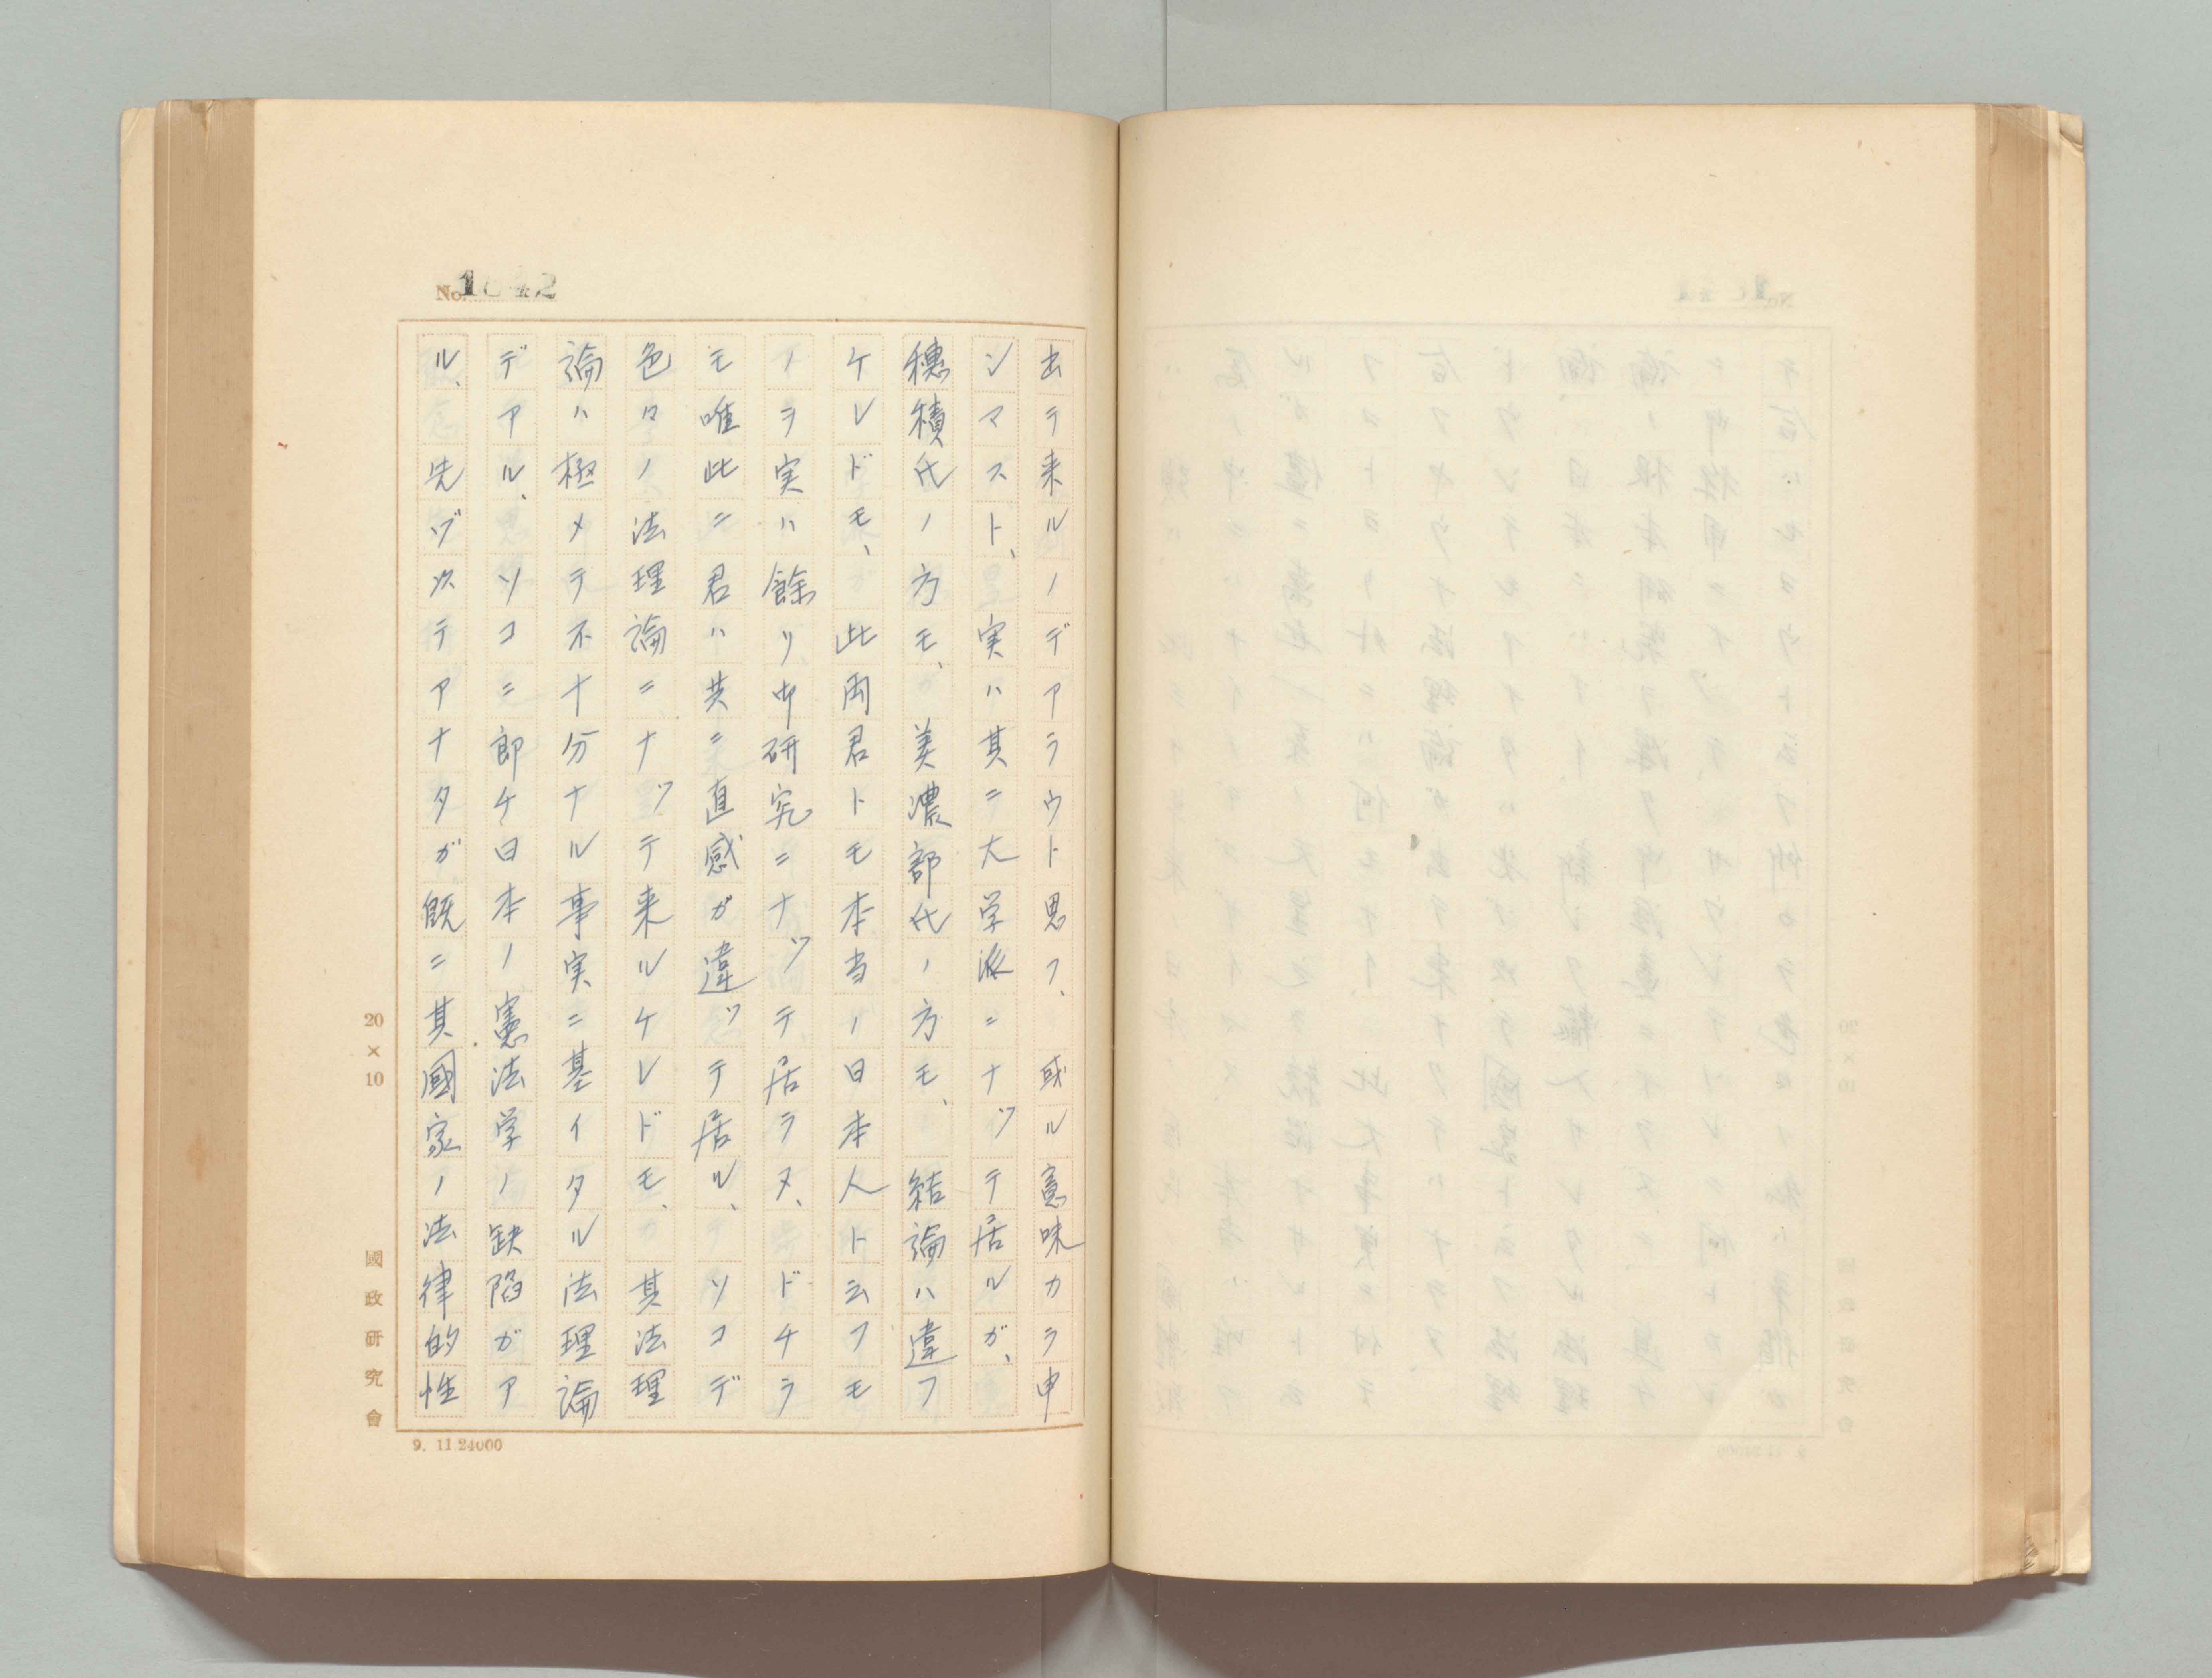 出テ来ルノデアラウト思フ、或ル意味カラ申
シマスト、実ハ其ニ大学派ニナッテ居ルガ、
穗積氏ノ方モ、美濃部氏ノ方モ、結論ハ違フ
ケレドモ、此両君トモ本当ノ日本人ト云フモ
ノヲ実ハ餘リ御研究ニナッテ居ラヌ、ドチラ
モ唯此ニ君ハ共ニ直感ガ違ッテ居ル、ソコデ
色々ノ法理論ニナッテ来ルケレドモ、其法理
論ハ極メテ不十分ナル事実ニ基イタル法理論
デアル、ソコニ郎ケ日本ノ憲法学ノ缺陥ガア
ル、先ヅ次テアナタガ既ニ其國家ノ法律的性
20×10 國政研究會
9. 11.24000